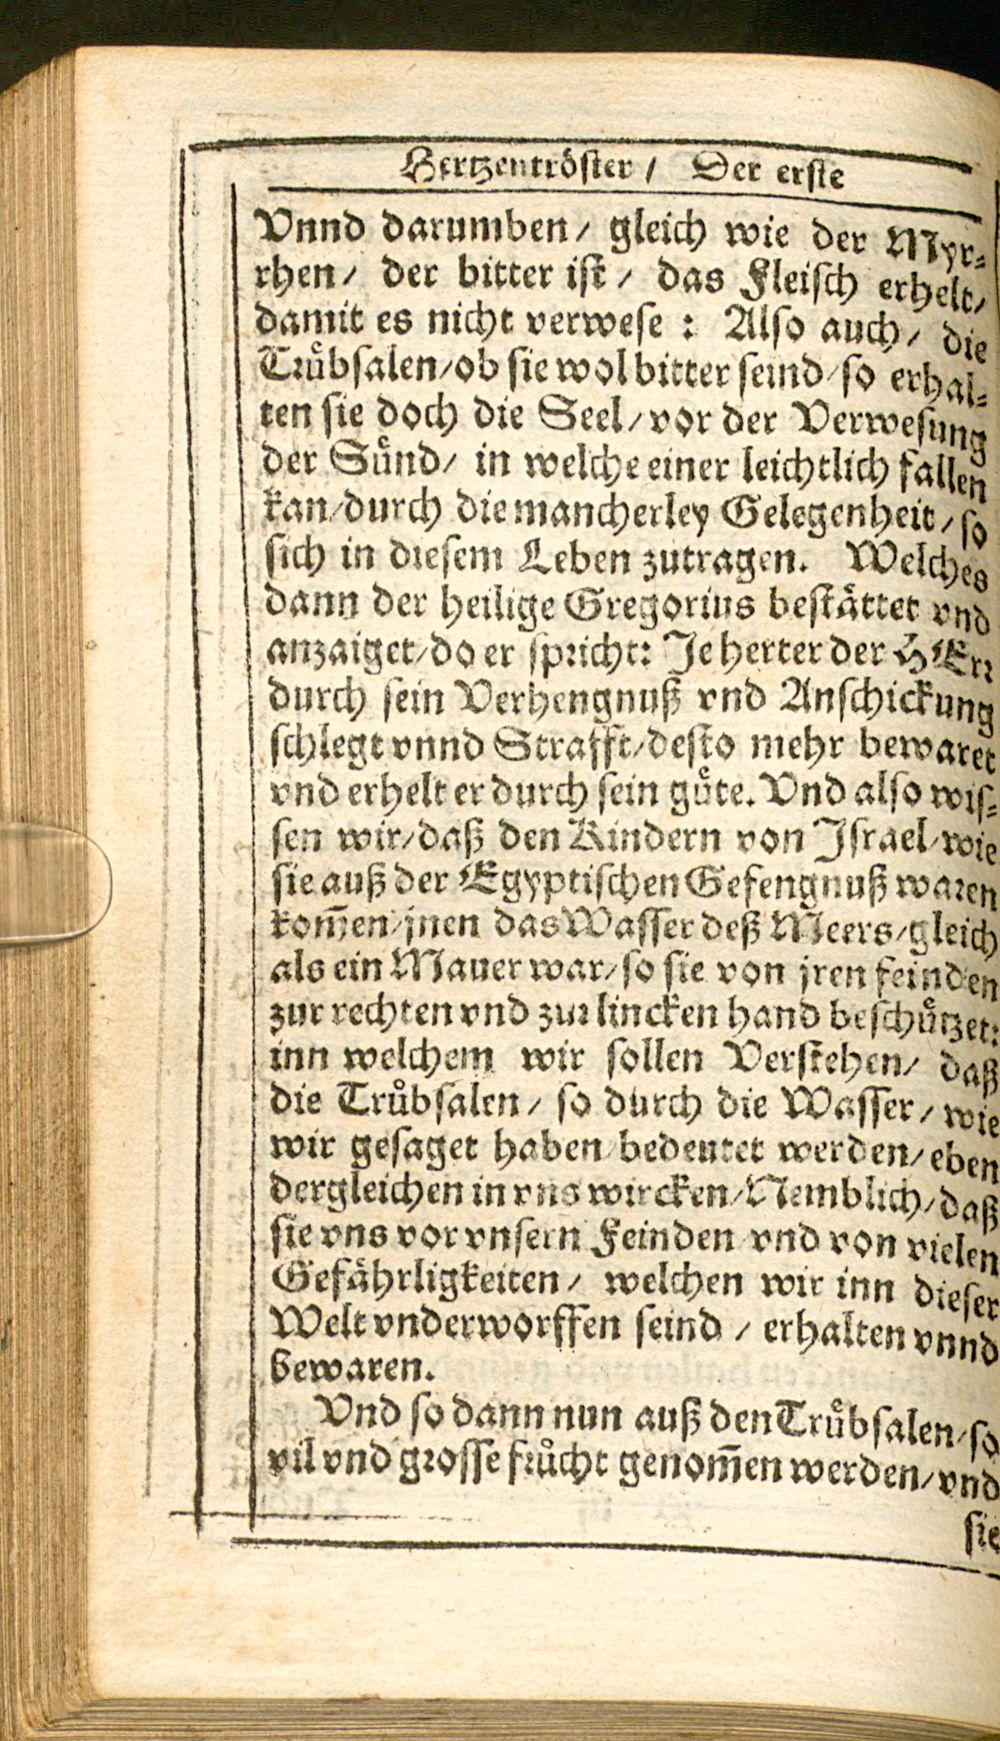 Hertzentröster / Der erste
Vnnd darumben / gleich wie der Myr⸗
rhen / der bitter ist / das Fleisch erhelt /
damit es nicht verwese : Also auch / die
Trůbsalen / ob sie wol bitter seind / so erhal⸗
ten sie doch die Seel / vor der Verwesung
der Sůnd / in welche einer leichtlich fallen
kan / durch die mancherley Gelegenheit / so
sich in diesem Leben zutragen. Welches
dann der heilige Gregorius bestättet vnd
anzaiget / do er spricht: Je herter der HErr
durch sein Verhengnuß vnd Anschickung
schlegt vnnd Strafft / desto mehr bewaret
vnd erhelt er durch sein gůte. Vnd also wis⸗
sen wir / daß den Kindern von Israel / wie
sie auß der Egyptischen Gefengnuß waren
kom̃en / jnen das Wasser deß Meers / gleich
als ein Mauer war / so sie von jren feinden
zur rechten vnd zur lincken hand beschůtzet:
inn welchem wir sollen Verstehen / daß
die Trůbsalen / so durch die Wasser / wie
wir gesaget haben bedeutet werden / eben
dergleichen in vns wircken / Nemblich / daß
sie vns vor vnsern Feinden vnd von vielen
Gefährligkeiten / welchen wir inn dieser
Welt vnderworffen seind / erhalten vnnd
bewaren.
Vnd so dann nun auß den Trůbsalen / so
vil vnd grosse frůcht genom̃en werden / vnd
sie